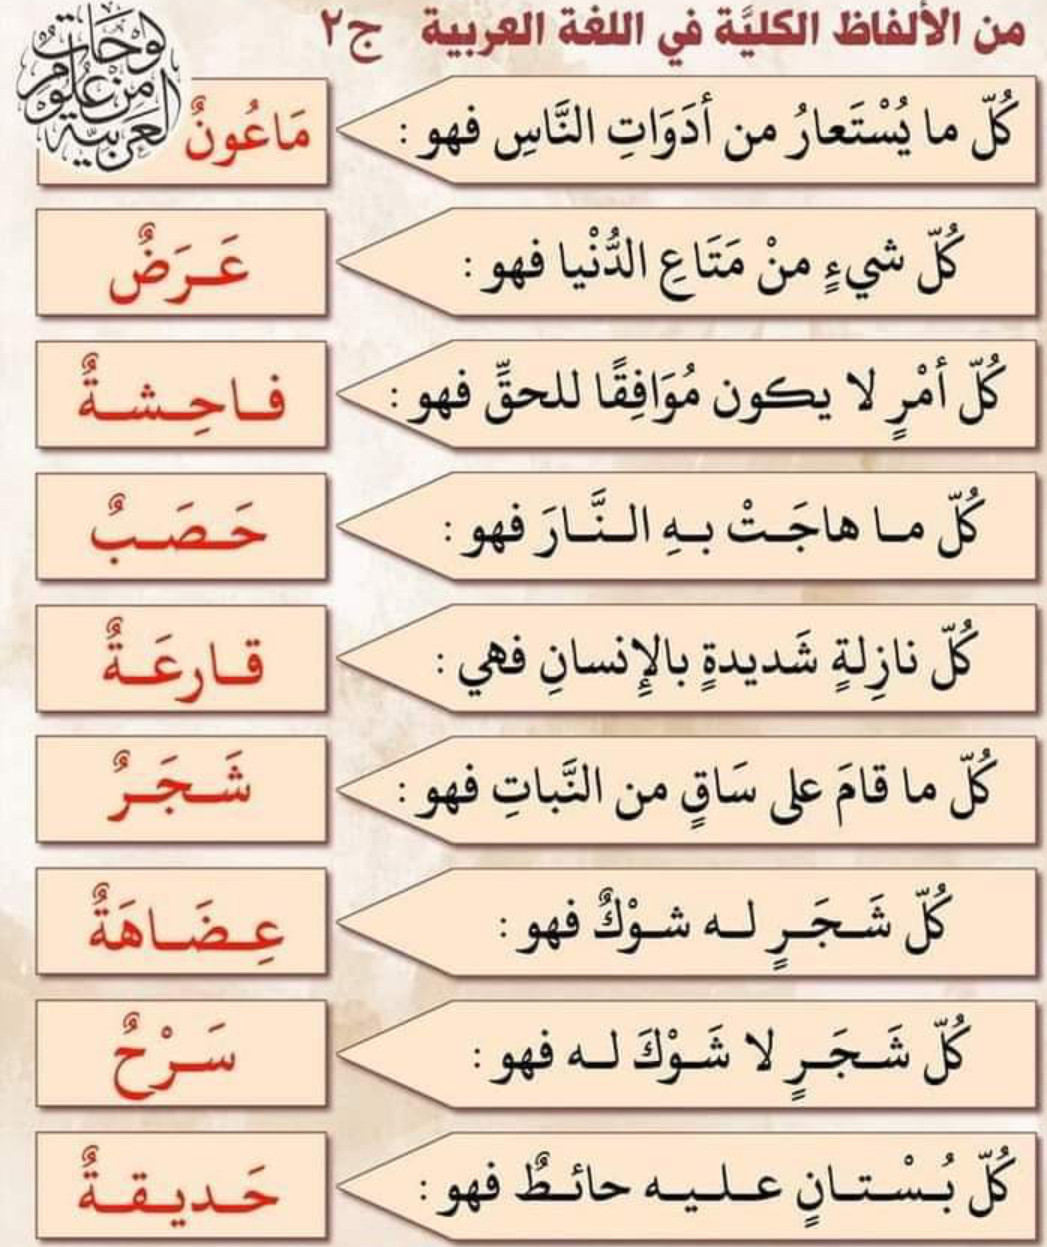 من الألفاظ الكليَّة في اللغة العربية ج٢
لوحات من علوم العربية
كُلّ ما يُسْتَعارُ من أدَوَاتِ النَّاسِ فهو : مَاعُونٌ
كُلّ شيءٍ منْ مَتَاعِ الدُّنْيا فهو : عَـرَضٌ
كُلّ أمْرٍ لا يكون مُوَافِقًا للحقِّ فهو : فـاحِـشـةٌ
كُلّ مـا هاجَـتْ بـهِ الـنَّـارَ فهو : حَـصَـبٌ
كُلّ نازِلةٍ شَديدةٍ بالإِنسانِ فهي : قـارعَـةٌ
كُلّ ما قامَ على سَاقٍ من النَّباتِ فهو : شَـجَـرٌ
كُلّ شَـجَـرٍ لـه شـوْكٌ فهو : عِـضَـاهَةٌ
كُلّ شَـجَـرٍ لا شَـوْكَ لـه فهو : سَـرْحٌ
كُلّ بُـسْـتـانٍ عـلـيـه حائـطٌ فهو : حَـديـقـةٌ